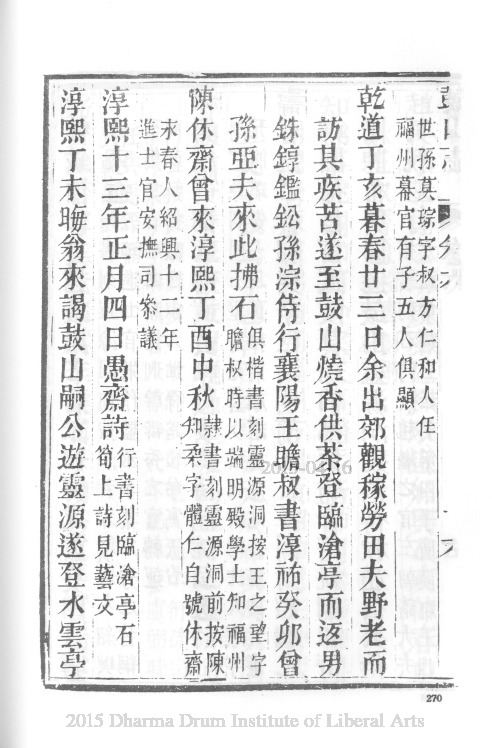 世孫莫琮字叔方仁和人任
福州幕官有子五人俱顯
乾道丁亥暮春廿三日余出郊觀稼勞田夫野老而
訪其疾苦遂至鼓山燒香供茶登臨滄亭而返男
銖錞鑑鈆孫淙侍行襄陽王瞻叔書淳祐癸卯曾
孫亞夫來此拂石
俱楷書刻靈源洞按王之望字
瞻叔時以端明殿學士知福州
陳休齋曾來淳熙丁酉中秋
隸書刻靈源洞前按陳
知柔字體仁自號休齋
永春人紹興十二年
進士官安撫司參議
淳熙十三年正月四日愚齋詩
行書刻臨滄亭石
筍上詩見藝文
淳熙丁未晦翁來謁鼓山嗣公遊靈源遂登水雲亭
270
2015 Dharma Drum Institute of Liberal Arts